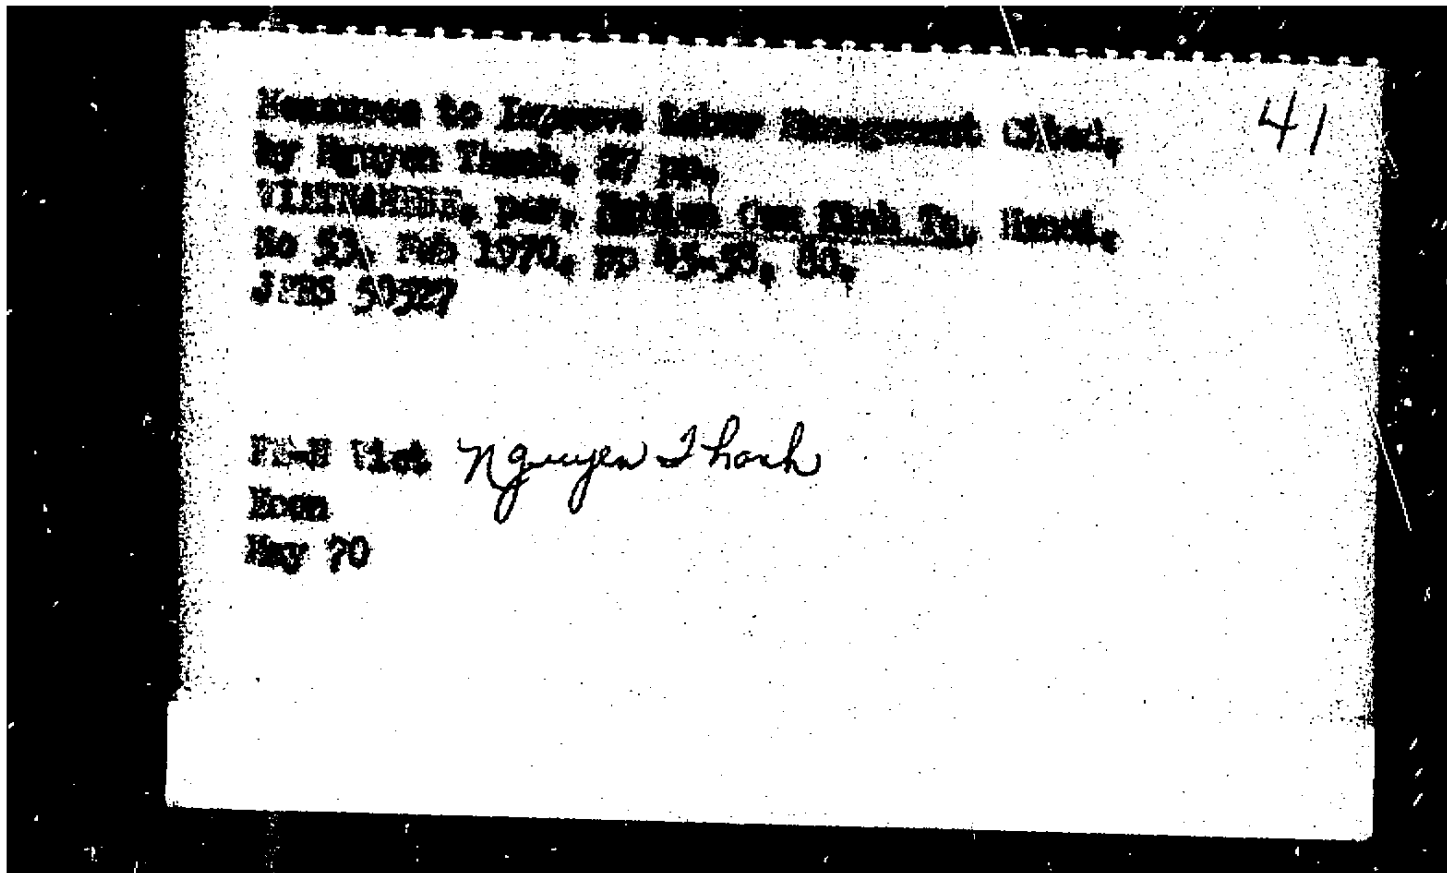 Measures to Improve Labor Management Cited, 41
by Nguyen Thanh, 27 pp.
VIETNAMESE, per, Nghien Cuu Kinh Te, Hanoi,
No 53, Feb 1970, pp 45-58, 80.
JPRS 50527
Viet Nguyen Thanh
Econ
May 70